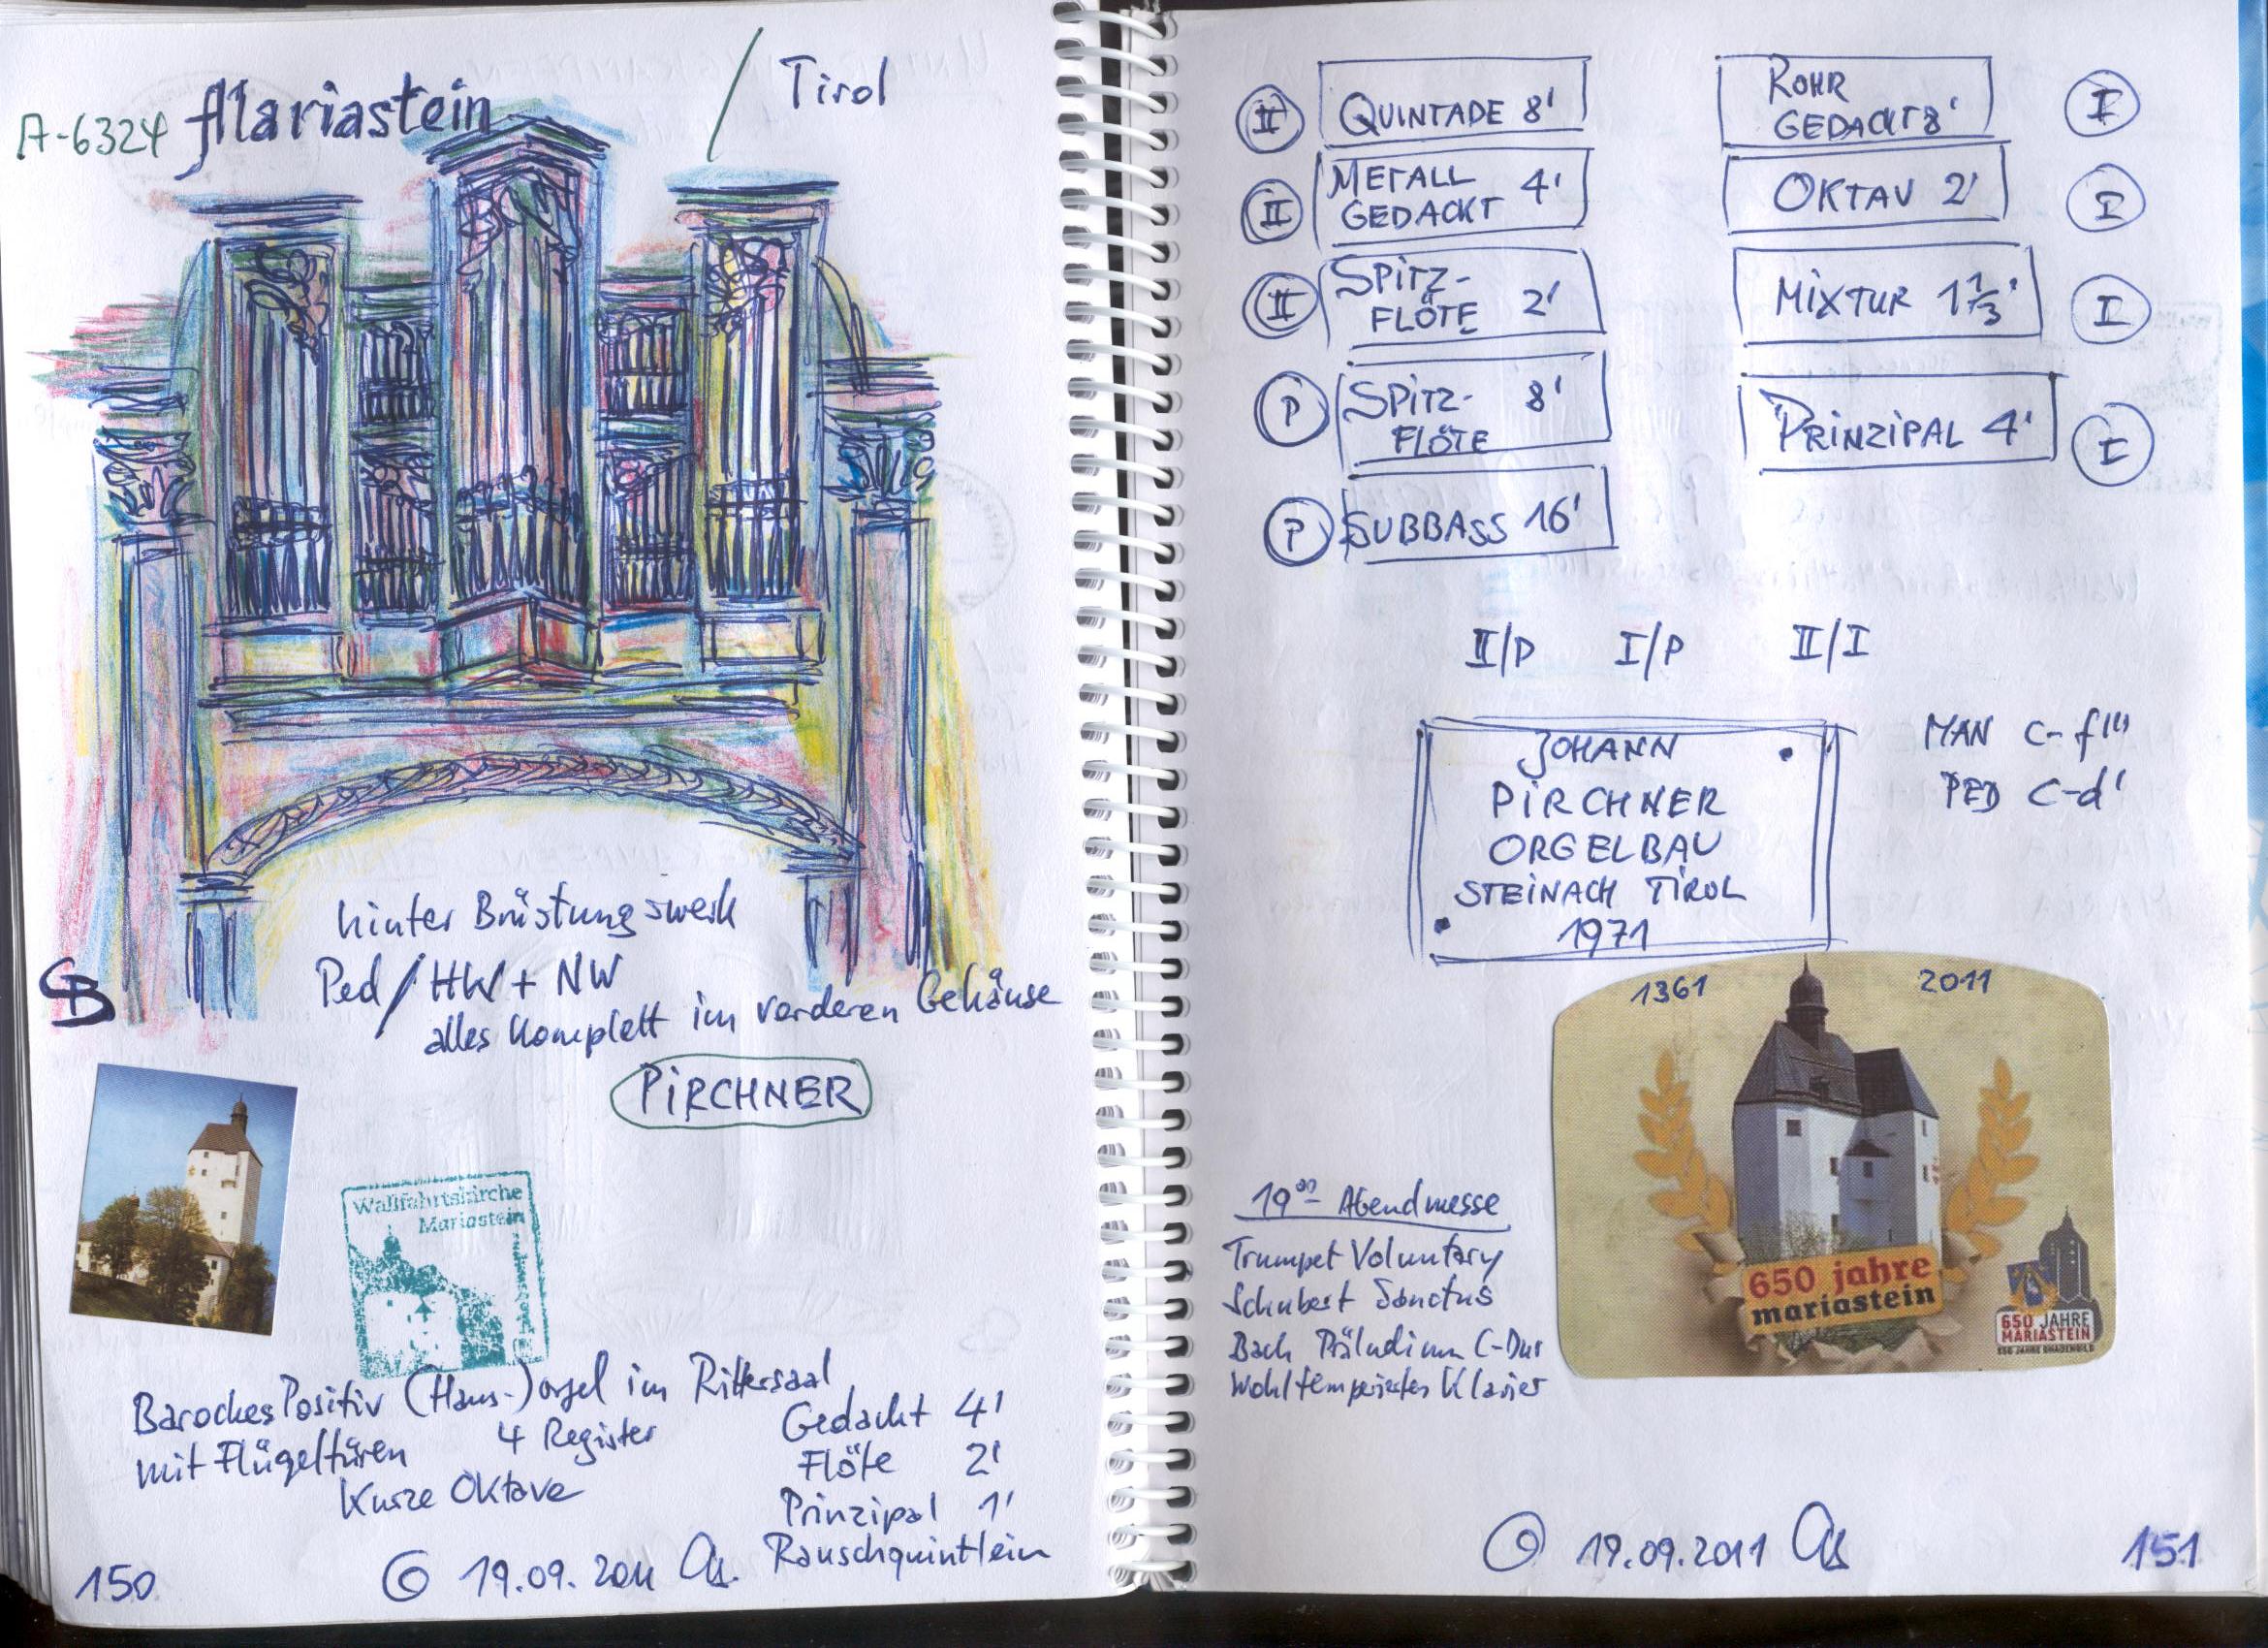 A-6324 Mariastein / Tirol
hinter Brüstungswerk
Ped / HW + NW
alles komplett im vorderen Gehäuse
PIRCHNER
Wallfahrtskirche
Mariastein
Barockes Positiv (Haus-)orgel im Rittersaal
mit Flügeltüren 4 Register
Kurze Oktave
Gedackt 4'
Flöte 2'
Prinzipal 1'
Rauschquintlein
150
19.09.2011
II QUINTADE 8'
II METALL GEDACKT 4'
II SPITZ-
FLÖTE 2'
P SPITZ- 8'
FLÖTE
P SUBBASS 16'
ROHR
GEDACKT 8' I
OKTAV 2' I
MIXTUR 1 1/3' I
PRINZIPAL 4' I
II/P I/P II/I
JOHANN
PIRCHNER
ORGELBAU
STEINACH TIROL
1971
MAN C-f'''
PED C-d'
1361 2011
650 jahre
mariastein
650 JAHRE
MARIASTEIN
650 JAHRE GNADENBILD
19°° Abendmesse
Trumpet Voluntary
Schubert Sanctus
Bach Präludium C-Dur
Wohltemperiertes Klavier
19.09.2011
151